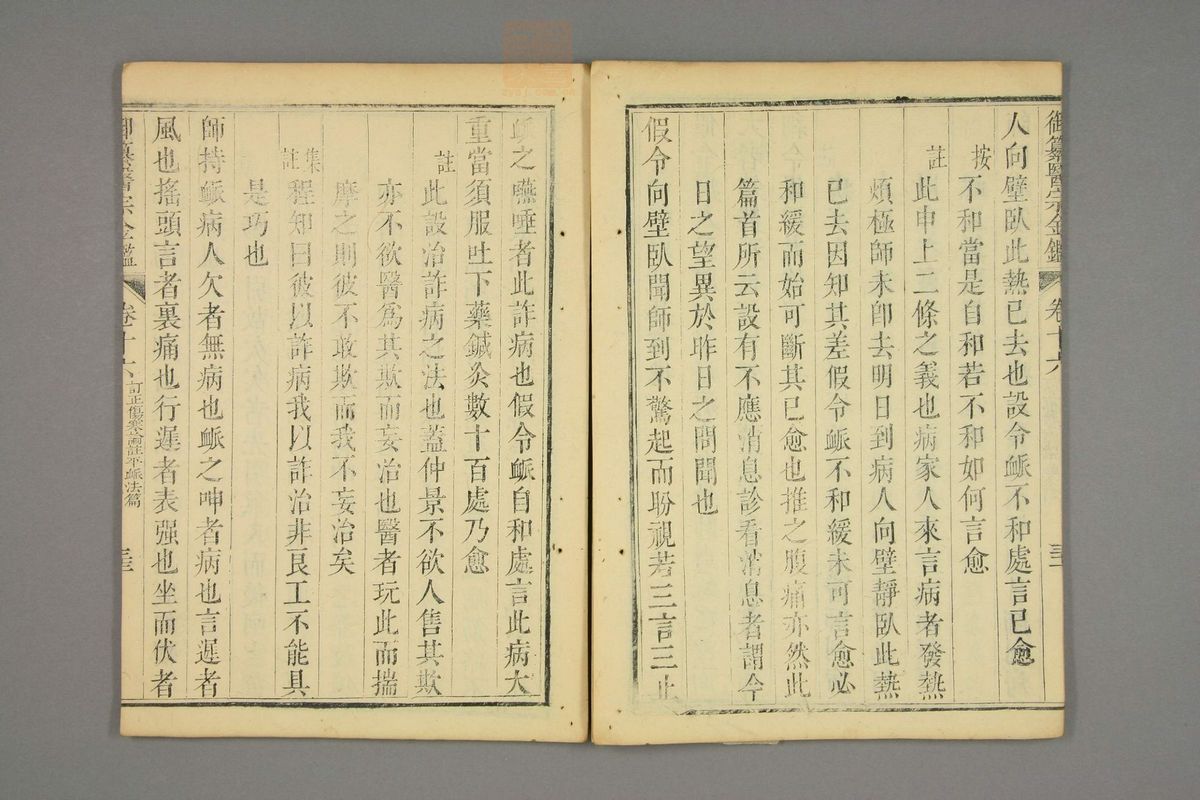 御纂醫宗金鑑 卷十六 三三
人向壁臥此熱已去也設令脈不和處言已愈
按不和當是自和若不和如何言愈
註此申上二條之義也病家人來言病者發熱
煩極師未卽去明日到病人向壁靜臥此熱
已去因知其差假令脈不和緩未可言愈必
和緩而始可斷其已愈也推之腹痛亦然此
篇首所云設有不應消息診看消息者謂今
日之望異於昨日之問聞也
假令向壁臥聞師到不驚起而盼視若三言三止
脈之嚥唾者此詐病也假令脈自和處言此病大
重當須服吐下藥鍼灸數十百處乃愈
註此設治詐病之法也蓋仲景不欲人售其欺
亦不欲醫爲其欺而妄治也醫者玩此而揣
摩之則彼不敢欺而我不妄治矣
集註程知曰彼以詐病我以詐治非良工不能具
是巧也
師持脈病人欠者無病也脈之呻者病也言遲者
風也搖頭言者裏痛也行遲者表强也坐而伏者
御纂醫宗金鑑 卷十六 訂正傷寒論註平脈法篇 三三